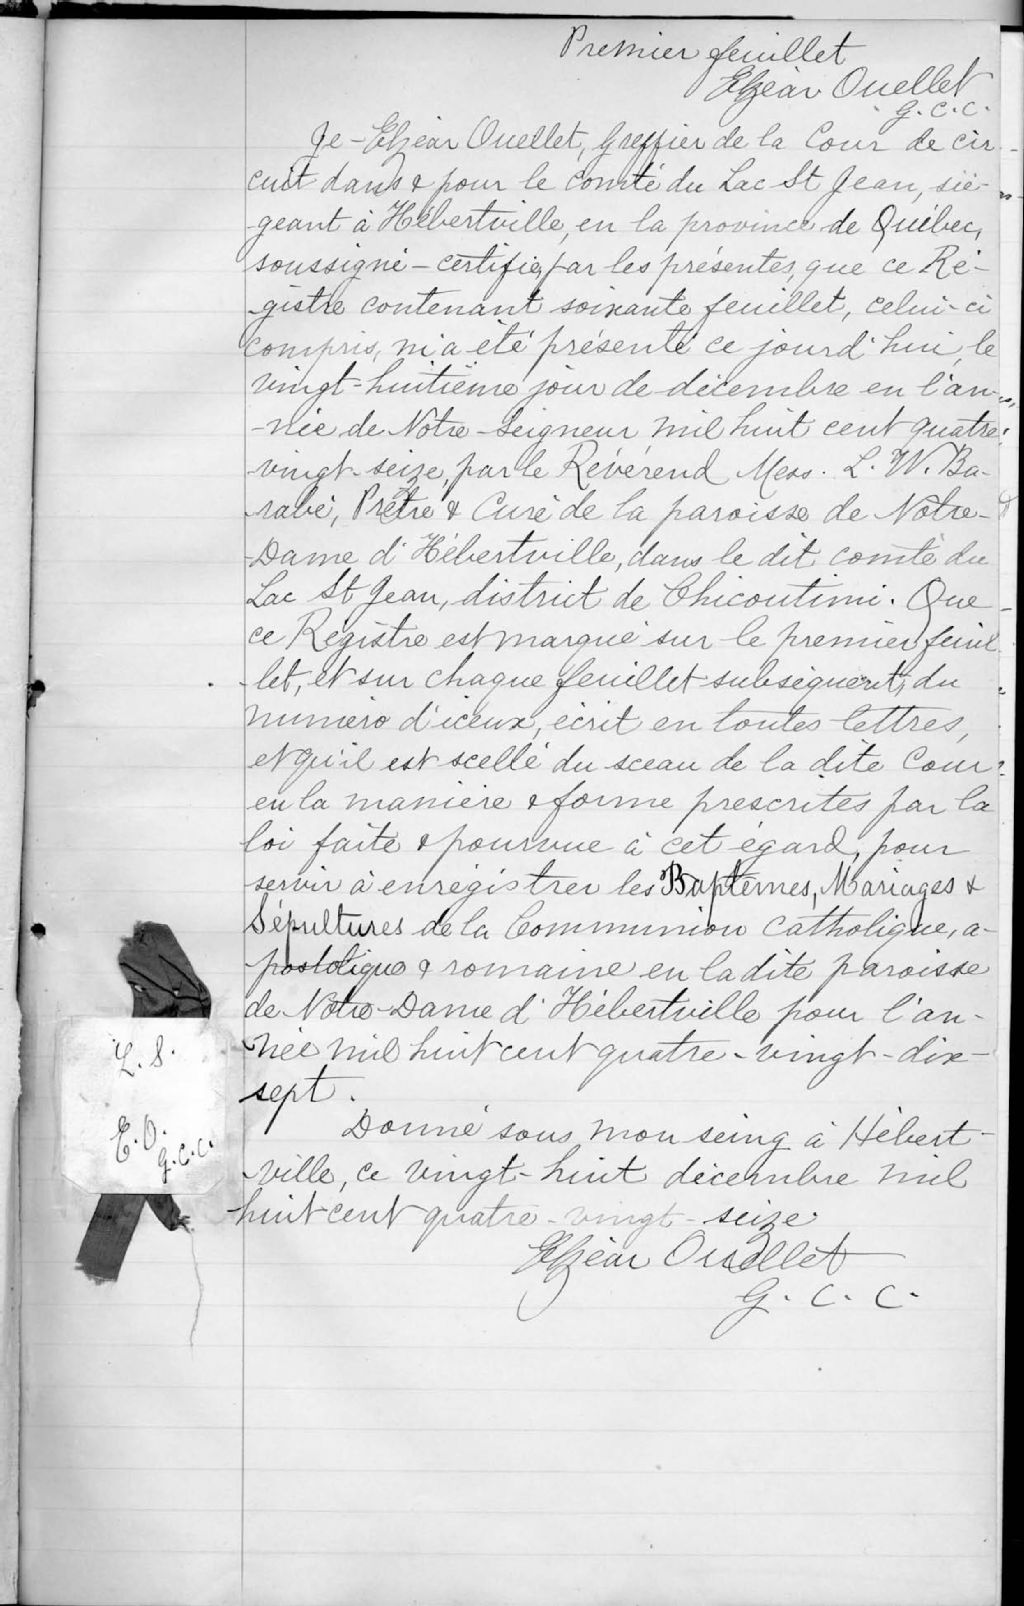 Premier feuillet
Elzéar Ouellet
G.C.C.
Je - Elzéar Ouellet, Greffier de la Cour de cir
cuit dans & pour le comté du Lac St Jean, sié-
geant à Hébertville, en la province de Québec,
soussigné - certifie, par les présentes, que ce Ré-
gistre contenant soixante feuillet, celui-ci
compris, m'a été présenté ce jourd'hui, le
vingt-huitième jour de décembre en l'an-
-née de Notre-Seigneur mil huit cent quatre
vingt-seize, par le Révérend Mess. L. W. Ba-
rabé, Prêtre & Curé de la paroisse de Notre-
Dame d'Hébertville, dans le dit comté du
Lac St Jean, district de Chicoutimi. Que
ce Régistre est marqué sur le premier feuil
let, et sur chaque feuillet subséquent, du
numéro d'iceux, écrit en toutes lettres,
et qu'il est scellé du sceau de la dite Cour
en la manière & forme prescrites par la
loi faite & pourvue à cet égard, pour
servir à enrégistrer les Baptêmes, Mariages &
Sépultures de la Communion Catholique, a-
postolique & romaine en la dite paroisse
de Notre-Dame d'Hébertville pour l'an-
née mil huit cent quatre-vingt-dix-
sept.
L. S.
E. O.
G.C.C.
Donné sous mon seing à Hébert-
ville, ce vingt-huit décembre mil
huit cent quatre-vingt-seize.
Elzéar Ouellet
G. C. C.